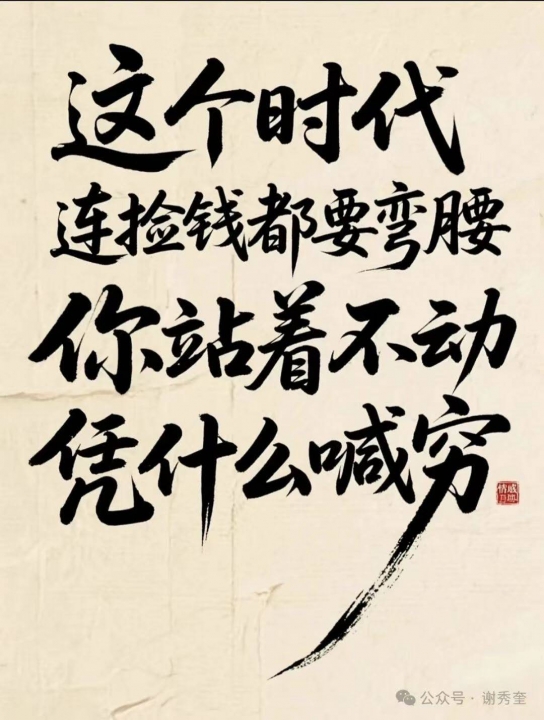 这个时代
连捡钱都要弯腰
你站着不动
凭什么喊穷
公众号 · 谢秀奎